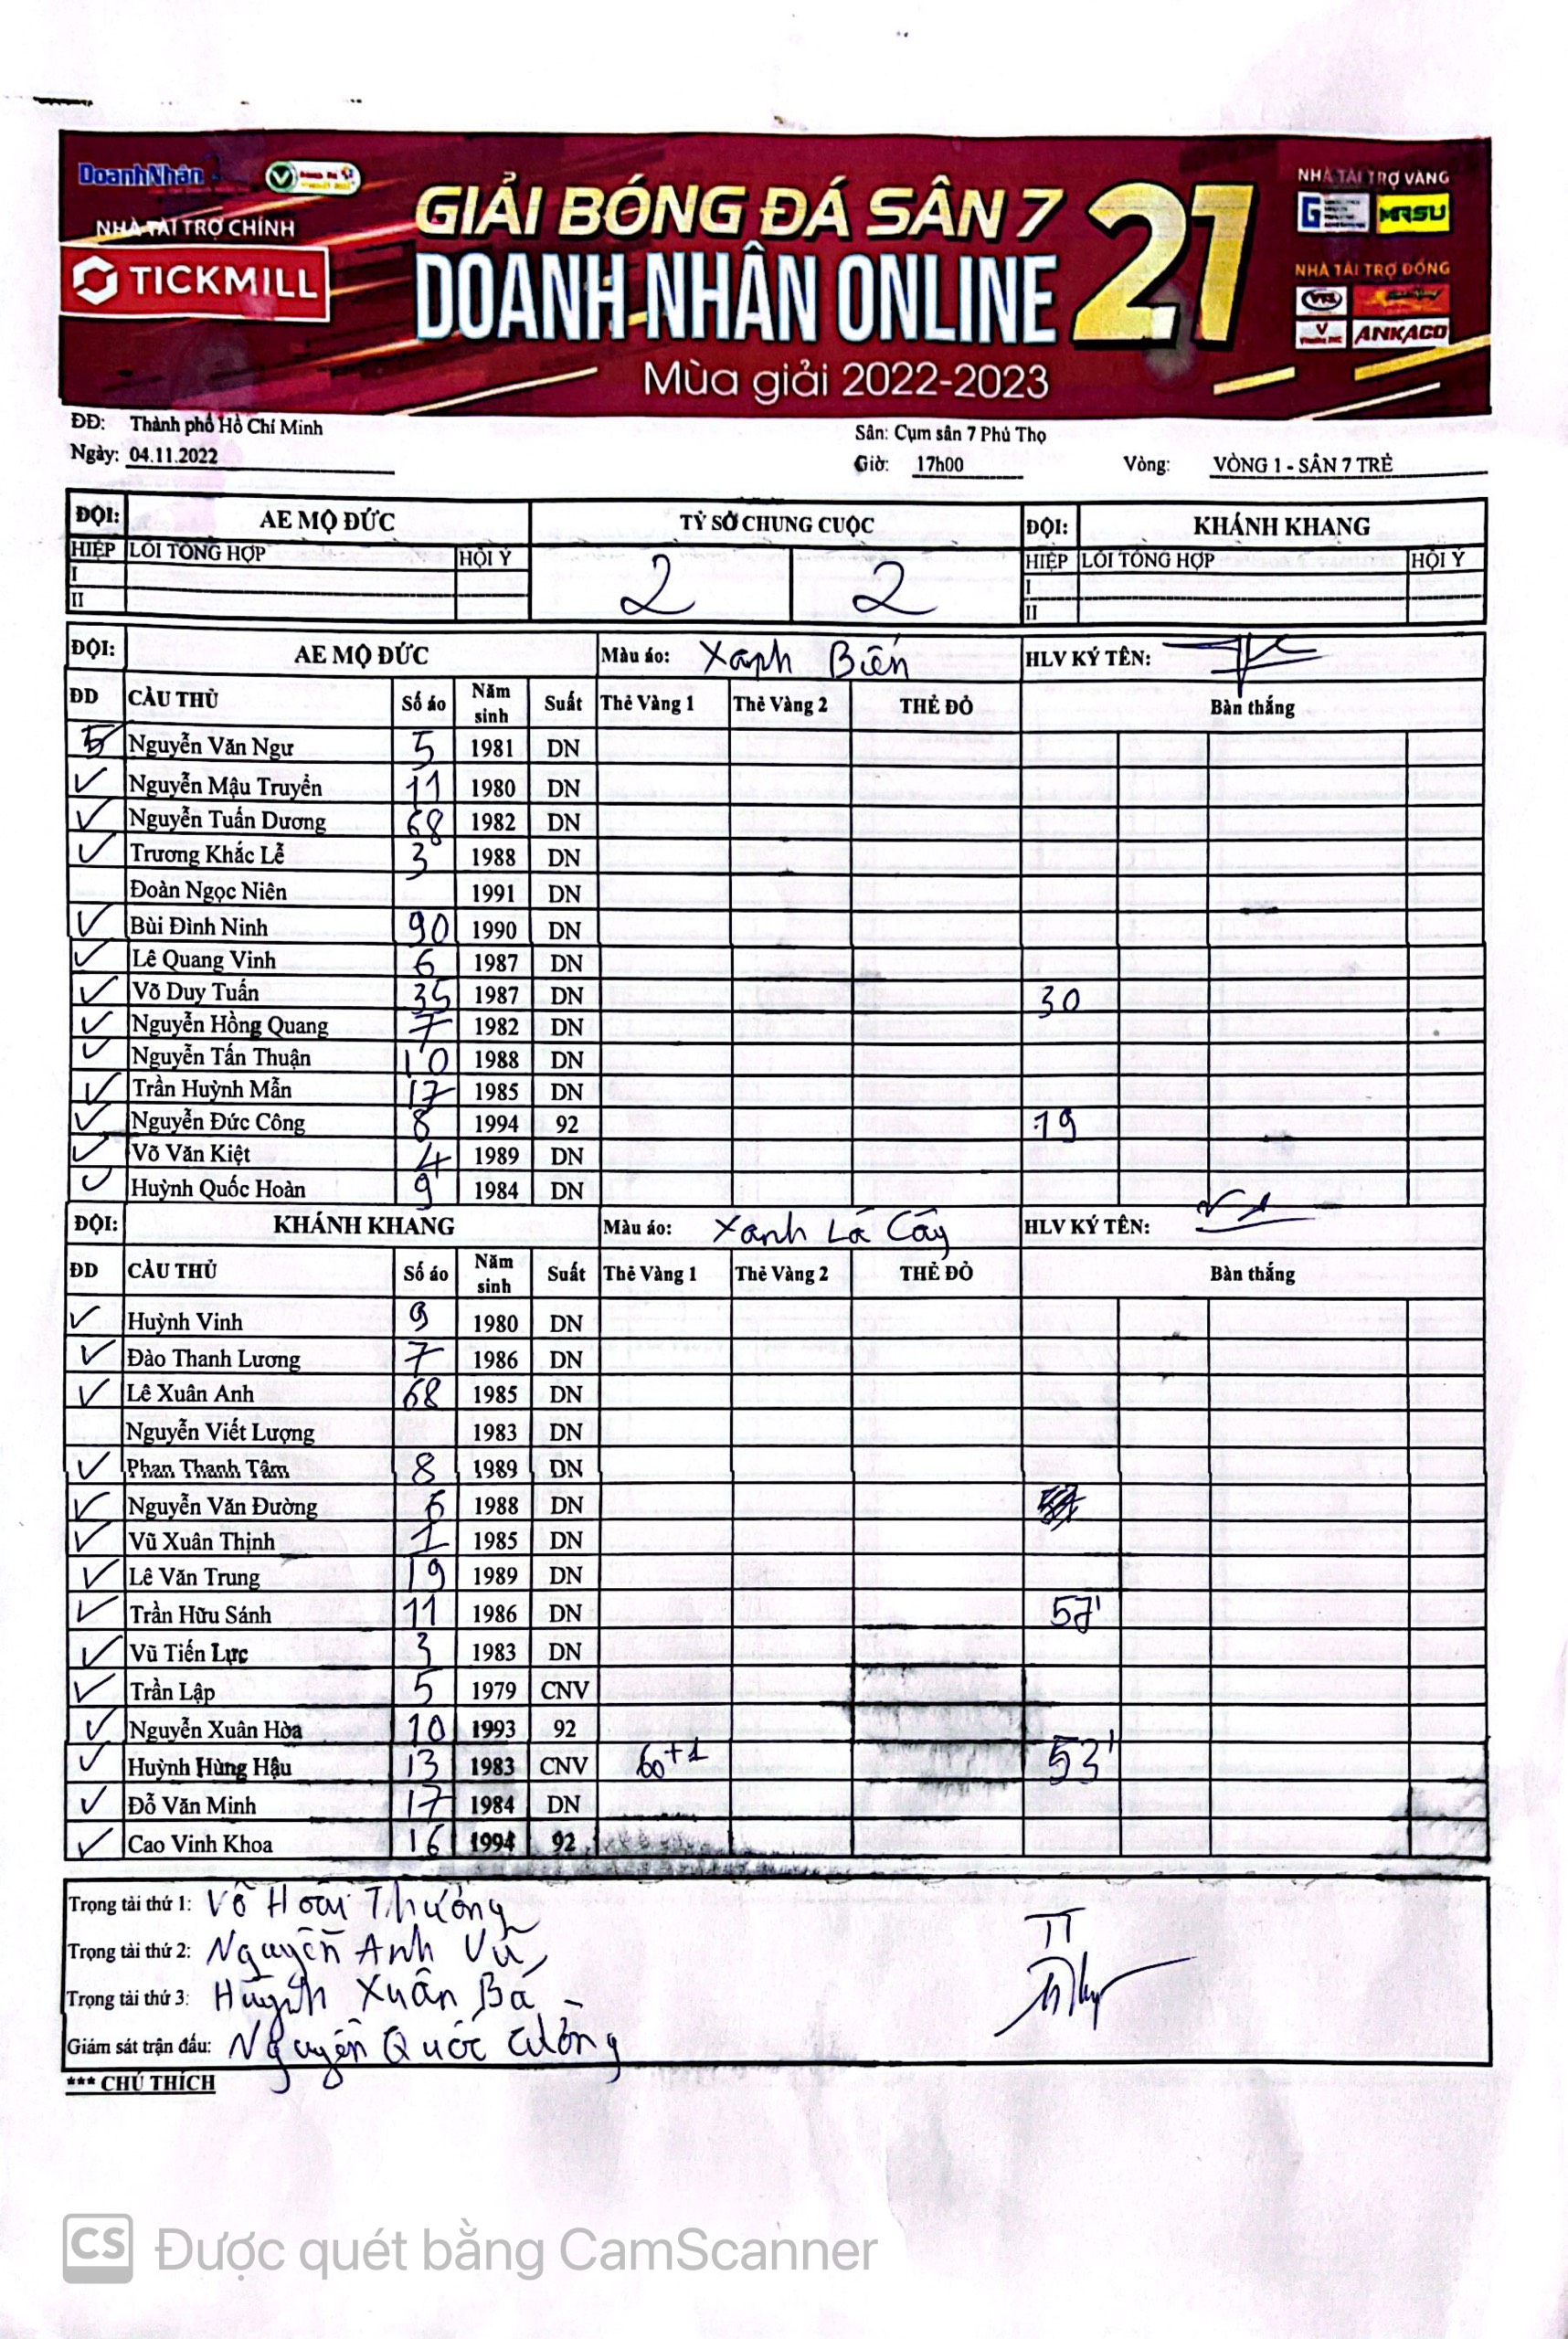 DoanhNhân
NHÀ TÀI TRỢ CHÍNH
TICKMILL
GIẢI BÓNG ĐÁ SÂN 7
DOANH NHÂN ONLINE
21
Mùa giải 2022-2023
NHÀ TÀI TRỢ VÀNG
MRSU
NHÀ TÀI TRỢ ĐỒNG
ANKACO
ĐĐ: Thành phố Hồ Chí Minh
Sân: Cụm sân 7 Phú Thọ
Ngày: 04.11.2022
Giờ: 17h00 Vòng: VÒNG 1 - SÂN 7 TRẺ
ĐỘI: AE MỘ ĐỨC TỶ SỐ CHUNG CUỘC ĐỘI: KHÁNH KHANG
HIỆP LỖI TỔNG HỢP HỘI Ý 2 2 HIỆP LỖI TỔNG HỢP HỘI Ý
I I
II II
ĐỘI: AE MỘ ĐỨC Màu áo: Xanh Biển HLV KÝ TÊN:
ĐD CẦU THỦ Số áo Năm sinh Suất Thẻ Vàng 1 Thẻ Vàng 2 THẺ ĐỎ Bàn thắng
Nguyễn Văn Ngư 5 1981 DN
✓ Nguyễn Mậu Truyền 11 1980 DN
✓ Nguyễn Tuấn Dương 68 1982 DN
✓ Trương Khắc Lễ 3 1988 DN
Đoàn Ngọc Niên 1991 DN
✓ Bùi Đình Ninh 90 1990 DN
✓ Lê Quang Vinh 6 1987 DN
✓ Võ Duy Tuấn 35 1987 DN 30
✓ Nguyễn Hồng Quang 7 1982 DN
✓ Nguyễn Tấn Thuận 10 1988 DN
✓ Trần Huỳnh Mẫn 17 1985 DN
✓ Nguyễn Đức Công 8 1994 92 19
✓ Võ Văn Kiệt 4 1989 DN
✓ Huỳnh Quốc Hoàn 9 1984 DN
ĐỘI: KHÁNH KHANG Màu áo: Xanh Lá Cây HLV KÝ TÊN:
ĐD CẦU THỦ Số áo Năm sinh Suất Thẻ Vàng 1 Thẻ Vàng 2 THẺ ĐỎ Bàn thắng
✓ Huỳnh Vinh 9 1980 DN
✓ Đào Thanh Lương 7 1986 DN
✓ Lê Xuân Anh 68 1985 DN
Nguyễn Viết Lượng 1983 DN
✓ Phan Thanh Tâm 8 1989 DN
✓ Nguyễn Văn Đường 6 1988 DN
✓ Vũ Xuân Thịnh 1 1985 DN
✓ Lê Văn Trung 19 1989 DN
✓ Trần Hữu Sánh 11 1986 DN 57'
✓ Vũ Tiến Lực 3 1983 DN
✓ Trần Lập 5 1979 CNV
✓ Nguyễn Xuân Hòa 10 1993 92
✓ Huỳnh Hùng Hậu 13 1983 CNV 60+1 53'
✓ Đỗ Văn Minh 17 1984 DN
✓ Cao Vinh Khoa 16 1994 92
Trọng tài thứ 1: Võ Hoài Thưởng
Trọng tài thứ 2: Nguyễn Anh Vũ
Trọng tài thứ 3: Huỳnh Xuân Bá
Giám sát trận đấu: Nguyễn Quốc Cường
TT
*** CHÚ THÍCH
CS Được quét bằng CamScanner